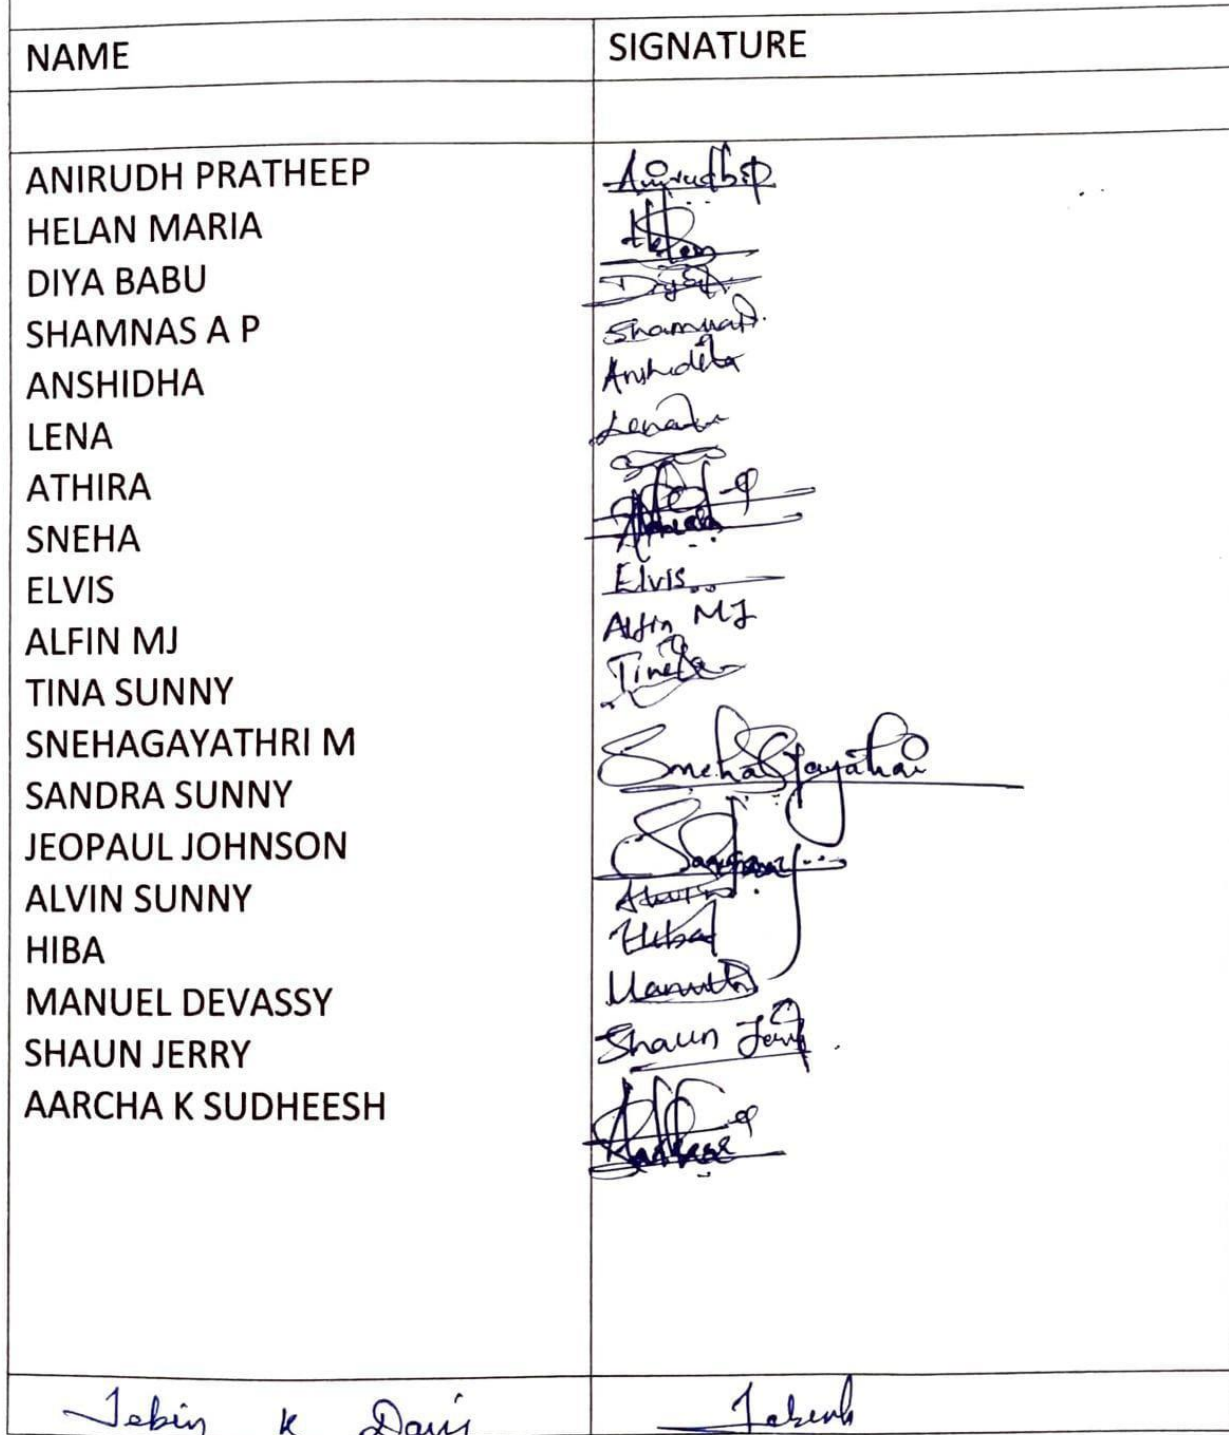 NAME SIGNATURE
ANIRUDH PRATHEEP Anirudh
HELAN MARIA Helan
DIYA BABU Diya
SHAMNAS A P Shamnas
ANSHIDHA Anshidha
LENA Lena
ATHIRA
SNEHA
ELVIS Elvis
ALFIN MJ Alfin MJ
TINA SUNNY Tina
SNEHAGAYATHRI M Snehagayathri
SANDRA SUNNY
JEOPAUL JOHNSON
ALVIN SUNNY
HIBA Hiba
MANUEL DEVASSY
SHAUN JERRY Shaun Jerry
AARCHA K SUDHEESH
Jebin K Davis Jebin